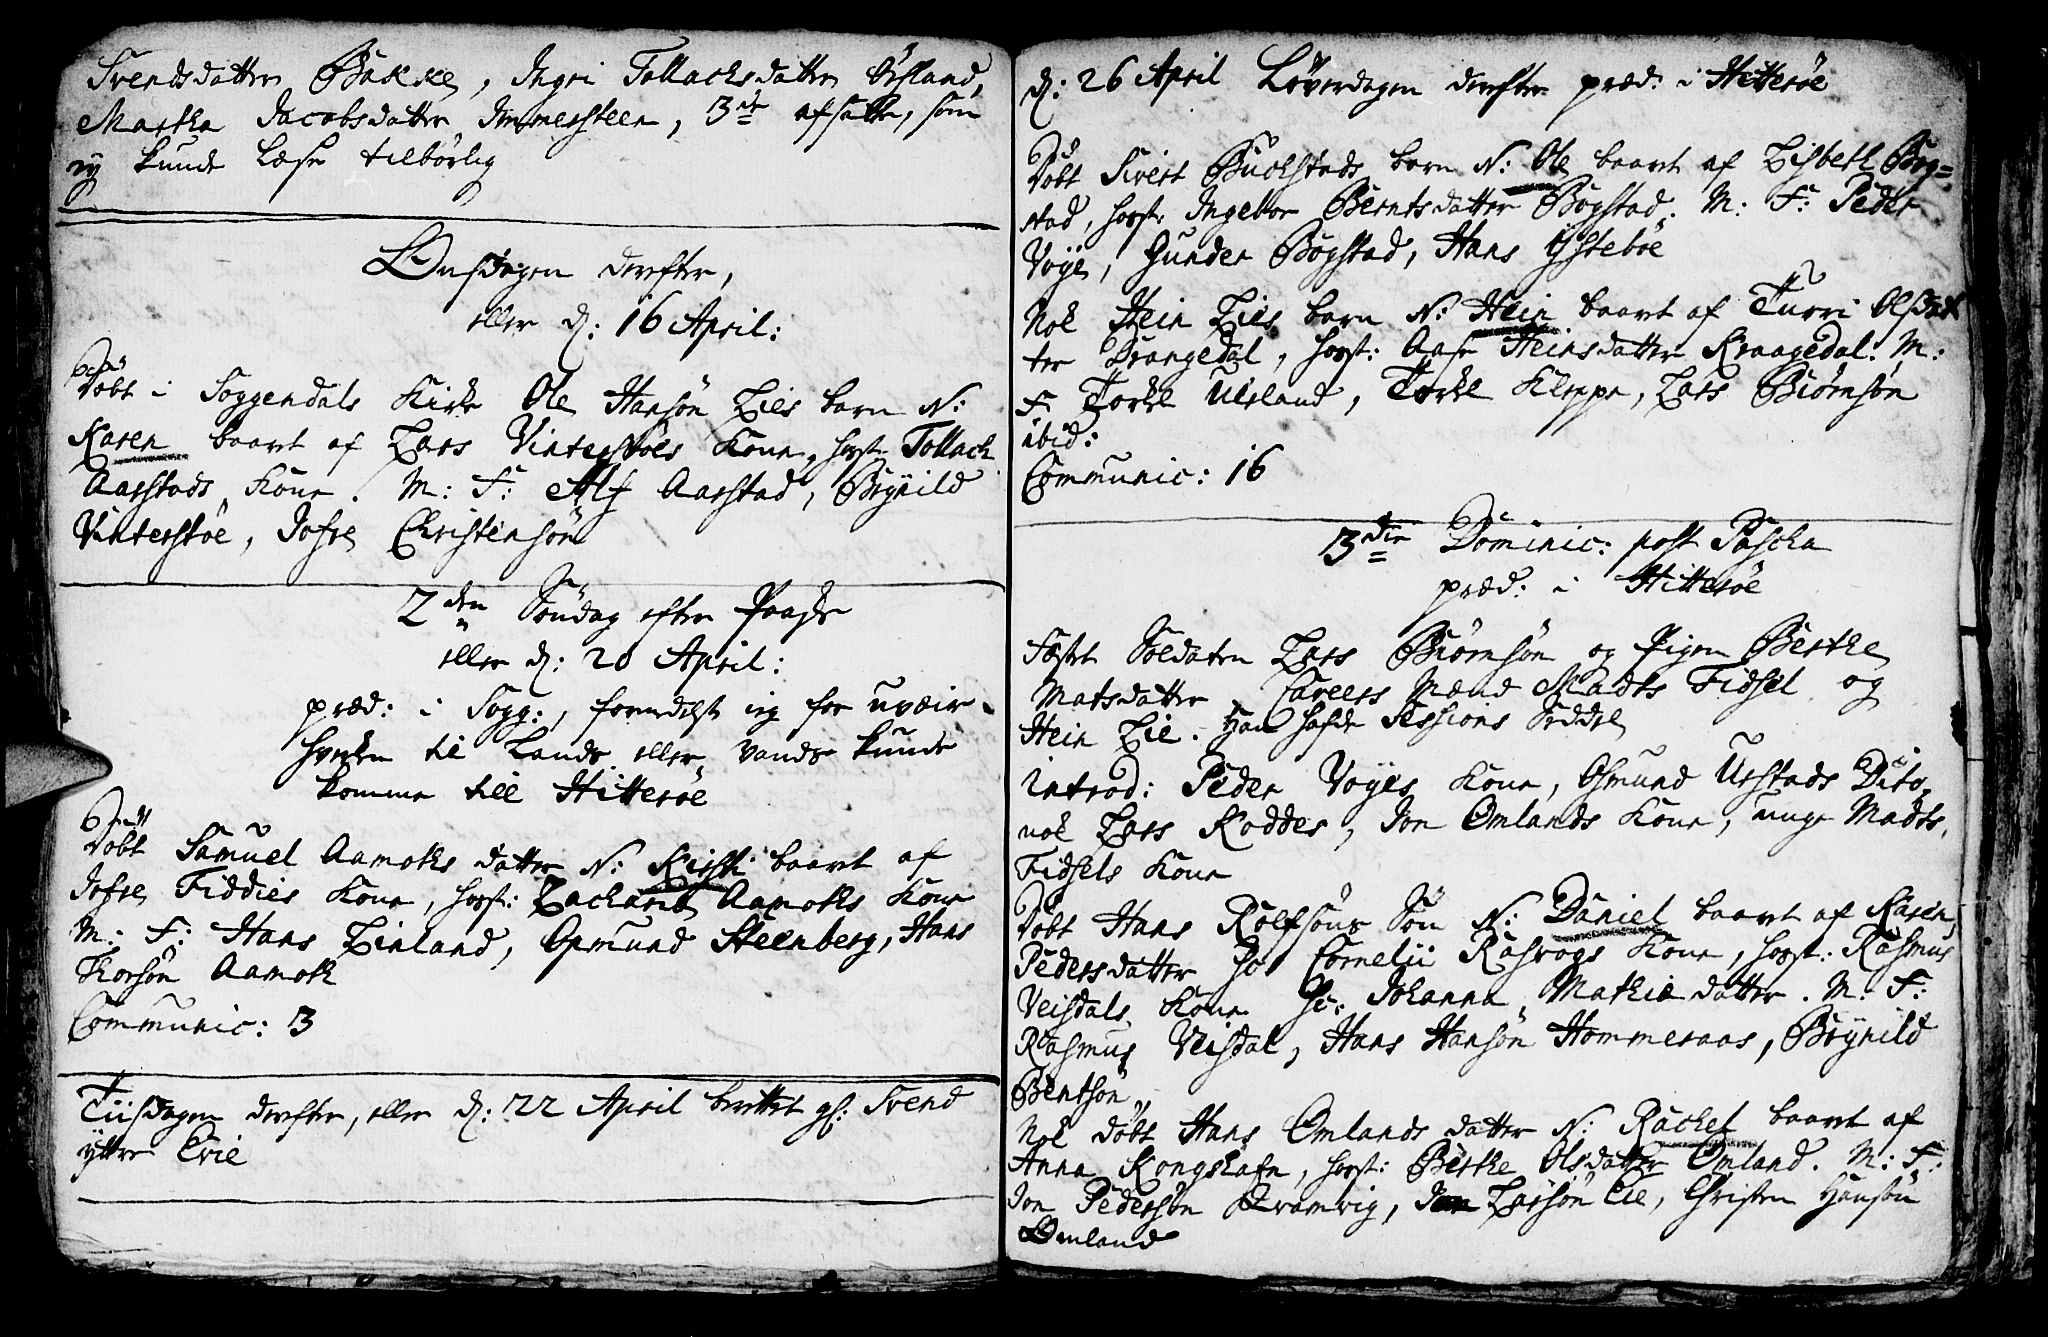 Svendsdatter Bakke, Ingri Tollachsdatter Ørsland,
Martha Jacobsdatter Immersteen, 3de afsatte, som
ej kunde læse tilbørlig
Onsdagen derefter,
eller d: 16 April:
Døbt i Soggendals Kirke Ole Hansøn Lies barn N:
Karen baaret af Lars Vinterstøes Kone, host: Tollach
Aarstads Kone. M: F: Alf Aarstad, Brynild
Vinterstøe, Jofre Christensøn
2den Søndag efter Paaske
eller d: 20 April:
præd: i Sogg:, formedelst jeg for uveir
hverken til Lands eller Vands kunde
komme till Hitterøe
Døbt Samuel Aamoths datter N: Kirsti baaret af
Jofre Fiddies Kone, host: Zacharie Aamoths Kone
M: F: Hans Linland, Gormund Steenberg, Hans
Thorsøn Aamoth
Communic: 3
Tiisdagen derefter, eller d: 22 April berettet gl: Svend
yttre Evie
d: 26 April Løverdagen derefter præd: i Hitterøe
Døbt Sivert Buchstads barn N: Ole baaret af Lisbeth Bog=
stad, host: Ingebor Berntsdatter Bogstad. M: F: Peder
Voye, Gunder Bogstad, Hans Ystebøe
Nok Hein Lies barn N: Hein baaret af Turri Olsdat
ter Drangedal, host: Aase Heinsdatter Kraagedal. M:
F. Torkel Ursland, Torkel Kleppe, Lars Biørnsøn
ibid:
Communic: 16
3die Dominic: post Pascha
præd: i Hitterøe
Fæstet Soldaten Lars Biørnsøn og Pigen Berthe
Matsdatter Caveers Mænd Madts Fidsel og
Hein Lie. Han hafde Sessions Seddel
introd: Peder Voyes Kone, Osmund Urstads Dito,
nok Lars Roddes, Jon Omlands Kone, unge Madts
Fidsels Kone
Døbt Hans Rolfsøns Søn N: Daniel baaret af Karen
Pedersdatter sc: Cornelii Rasvogs Kone, host: Rasmus
Veisdals Kone sc: Johanna Mathiæ datter. M: F:
Rasmus Veisdal, Hans Hansøn Hommeraas, Brynild
Bentsøn
Nok døbt Hans Omlands datter N: Rachel baaret af
Anna Kongshafn, host: Berthe Olsdatter Omland. M: F:
Jon Pedersøn Qvamvig, Jon Larsøn Eie, Christen Hansøn
Omland